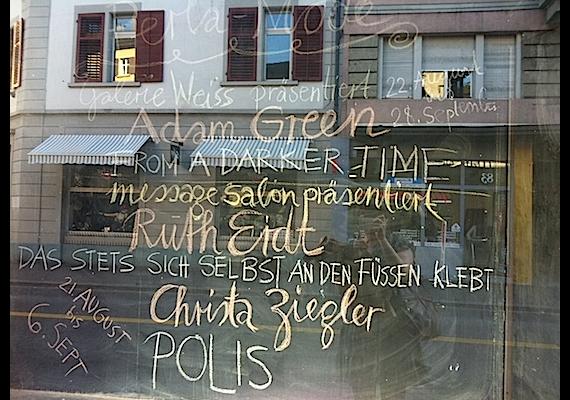 Perla Mode
Galerie Weiss präsentiert
22. August
28. September
Adam Green
FROM A DARKER TIME
message salon präsentiert
Ruth Erdt
DAS STETS SICH SELBST AN DEN FÜSSEN KLEBT
21 AUGUST
bis
6. SEPT
Christa Ziegler
POLIS